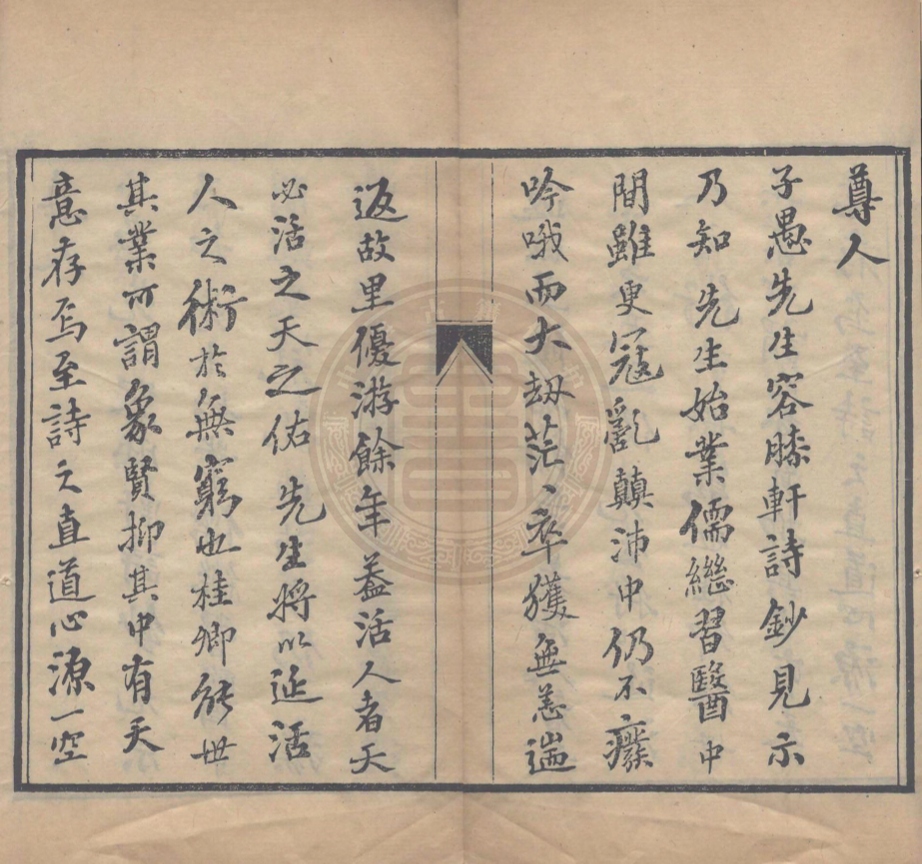 尊人
子愚先生容膝軒詩鈔見示
乃知先生始業儒繼習醫中
間雖更寇亂顛沛中仍不癈
吟哦而大刼茫〻卒獲無恙遄
返故里優游餘年蓋活人者天
必活之天之佑先生將以延活
人之術於無窮也桂卿能世
其業可謂象賢抑其中有天
意存焉至詩之直道心源一空